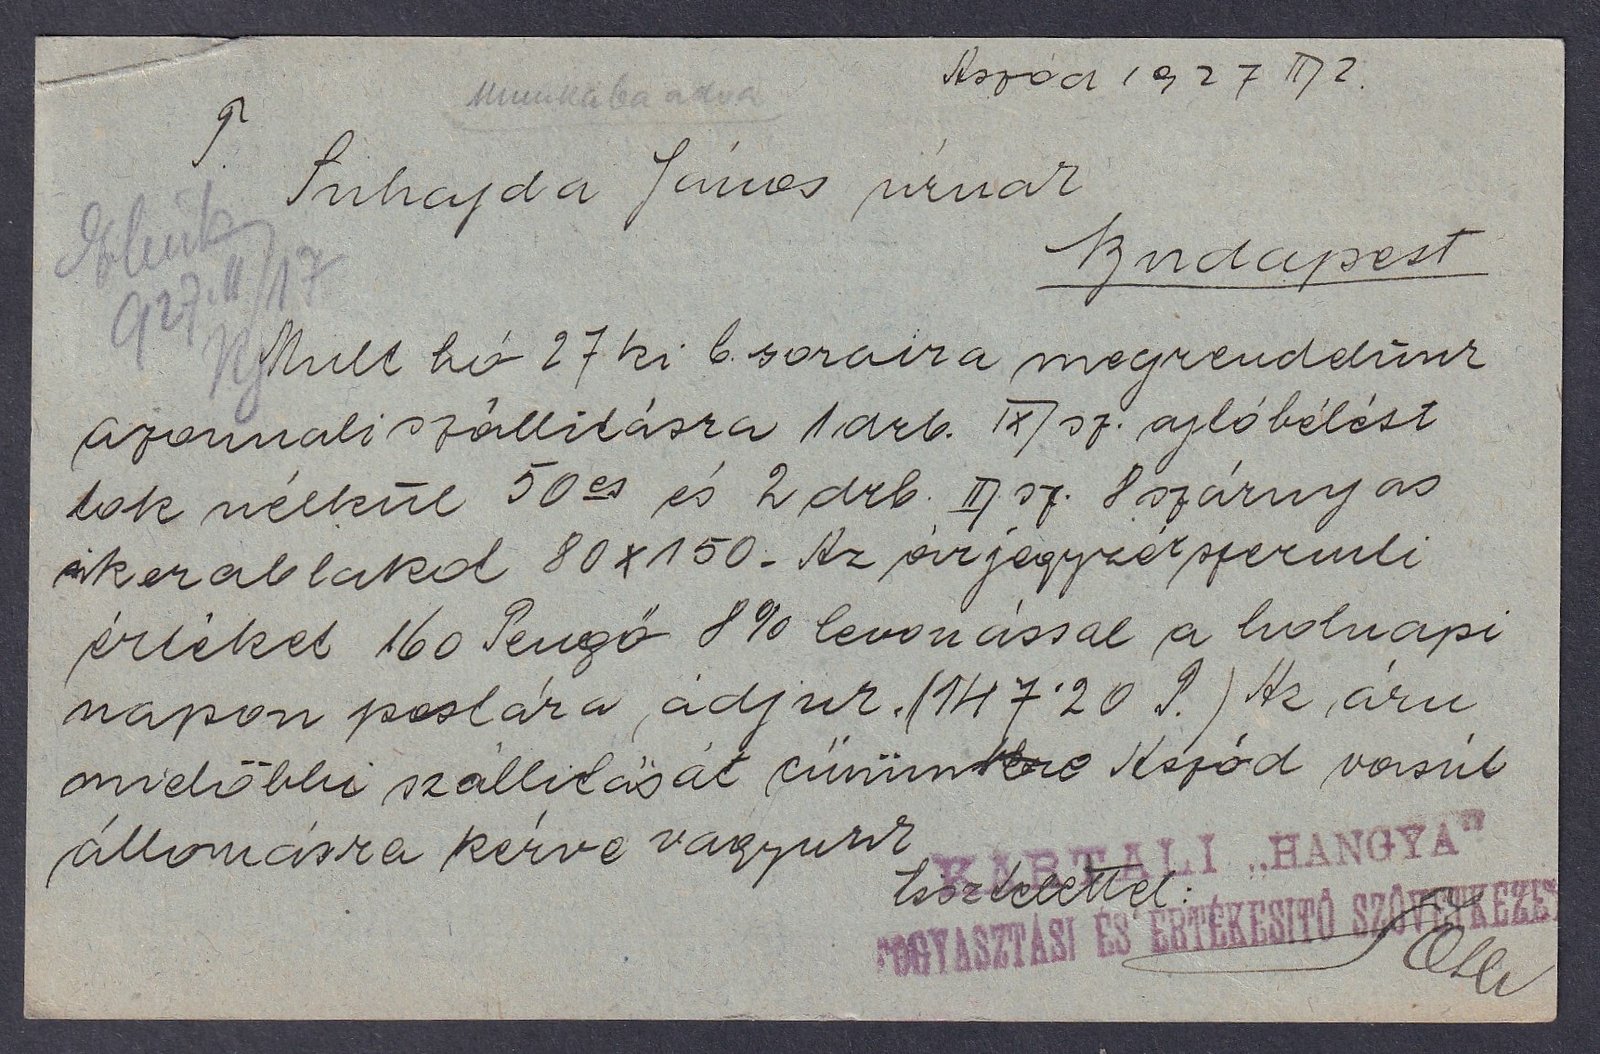 Aszód 1927 II/2.
Munkába adva
P.
Suhajda János úrnak
Budapest
Elküld
927.II/17
Mult hó 27 ki b. soraira megrendelünk
azonnali szállitásra 1 drb. IX/sz. ajtóbélést
tok nélkül 50es és 2 drb. II/sz. 8 szárnyas
ikerablakot 80x150.- Az árjegyzék szerinti
értéket 160 Pengő 8% levonással a holnapi
napon postára adjuk. (147.20 P.) Az áru
mielőbbi szállitását címünkre Aszód vasút
állomásra kérve vagyunk
tisztelettel:
KARTALI „HANGYA"
FOGYASZTÁSI ÉS ÉRTÉKESITŐ SZÖVETKEZET